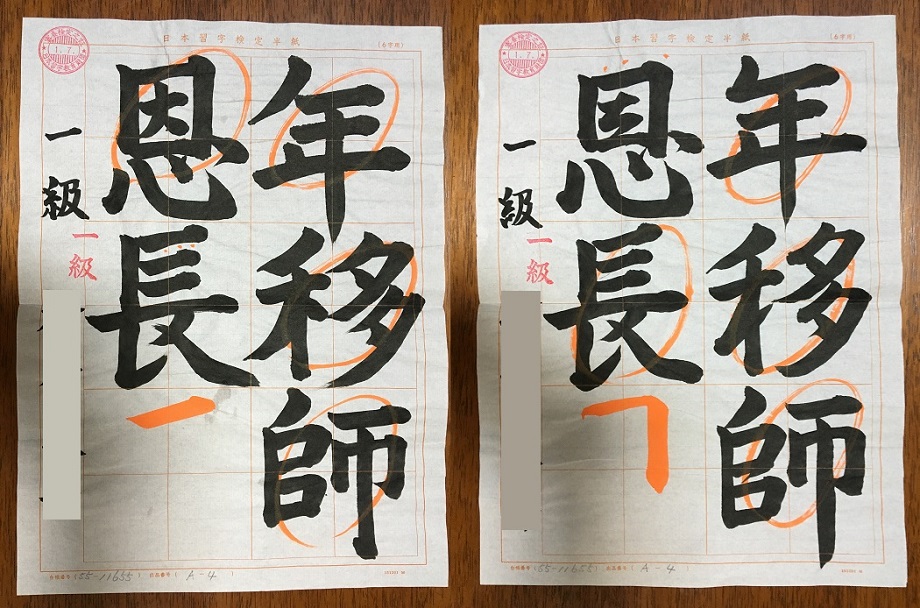 日本習字検定半紙
(6字用)
(1.7.)
年移師
恩長
一級
一級
(55-11655)
(A-4)
日本習字検定半紙
(6字用)
(1.7.)
年移師
恩長
一級
一級
(55-11655)
(A-4)